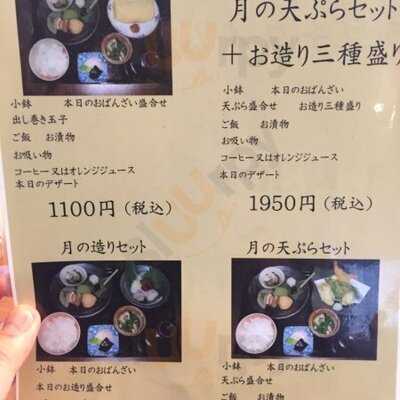 小鉢 本日のおばんざい盛合せ
出し巻き玉子
ご飯 お漬物
お吸い物
コーヒー又はオレンジジュース
本日のデザート
1100円(税込)
月の天ぷらセット
+お造り三種盛り
小鉢 本日のおばんざい
天ぷら盛合せ お造り三種盛り
ご飯 お漬物
お吸い物
コーヒー又はオレンジジュース
本日のデザート
1950円(税込)
月の造りセット
小鉢 本日のおばんざい
本日のお造り盛合せ
月の天ぷらセット
小鉢 本日のおばんざい
天ぷら盛合せ
ご飯 お漬物